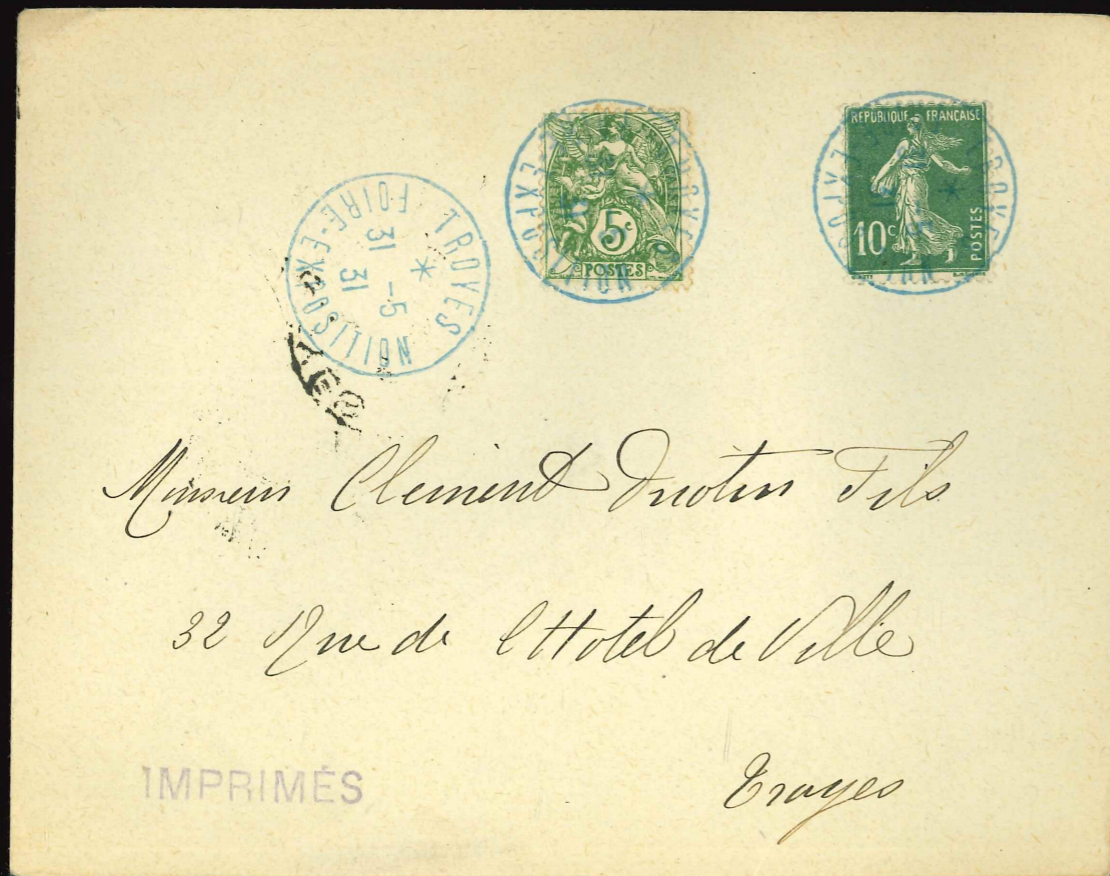 TROYES
FOIRE-EXPOSITION
*
31 -5
31
5c
POSTES
REPUBLIQUE FRANÇAISE
10c
POSTES
Monsieur Clement Fils
32 Rue de l'Hotel de Ville
Troyes
IMPRIMÉS